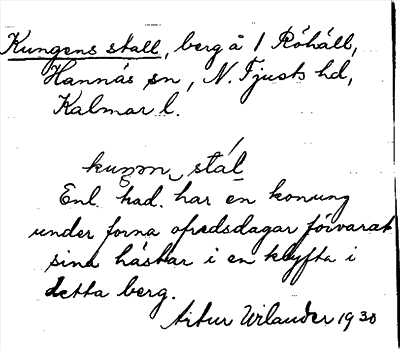 Kungens stall, berg å / Röhäll,
Hannäs sn, N. Tjusts hd,
Kalmar l.
stál
Enl. trad. har en konung
under forna ofredsdagar förvarat
sina hästar i en klyfta i
detta berg.
Artur Wilander 1930